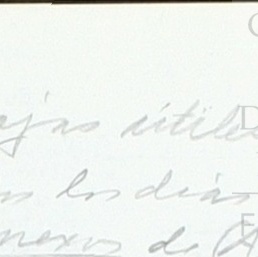 ojas útiles
os los días
nexos de